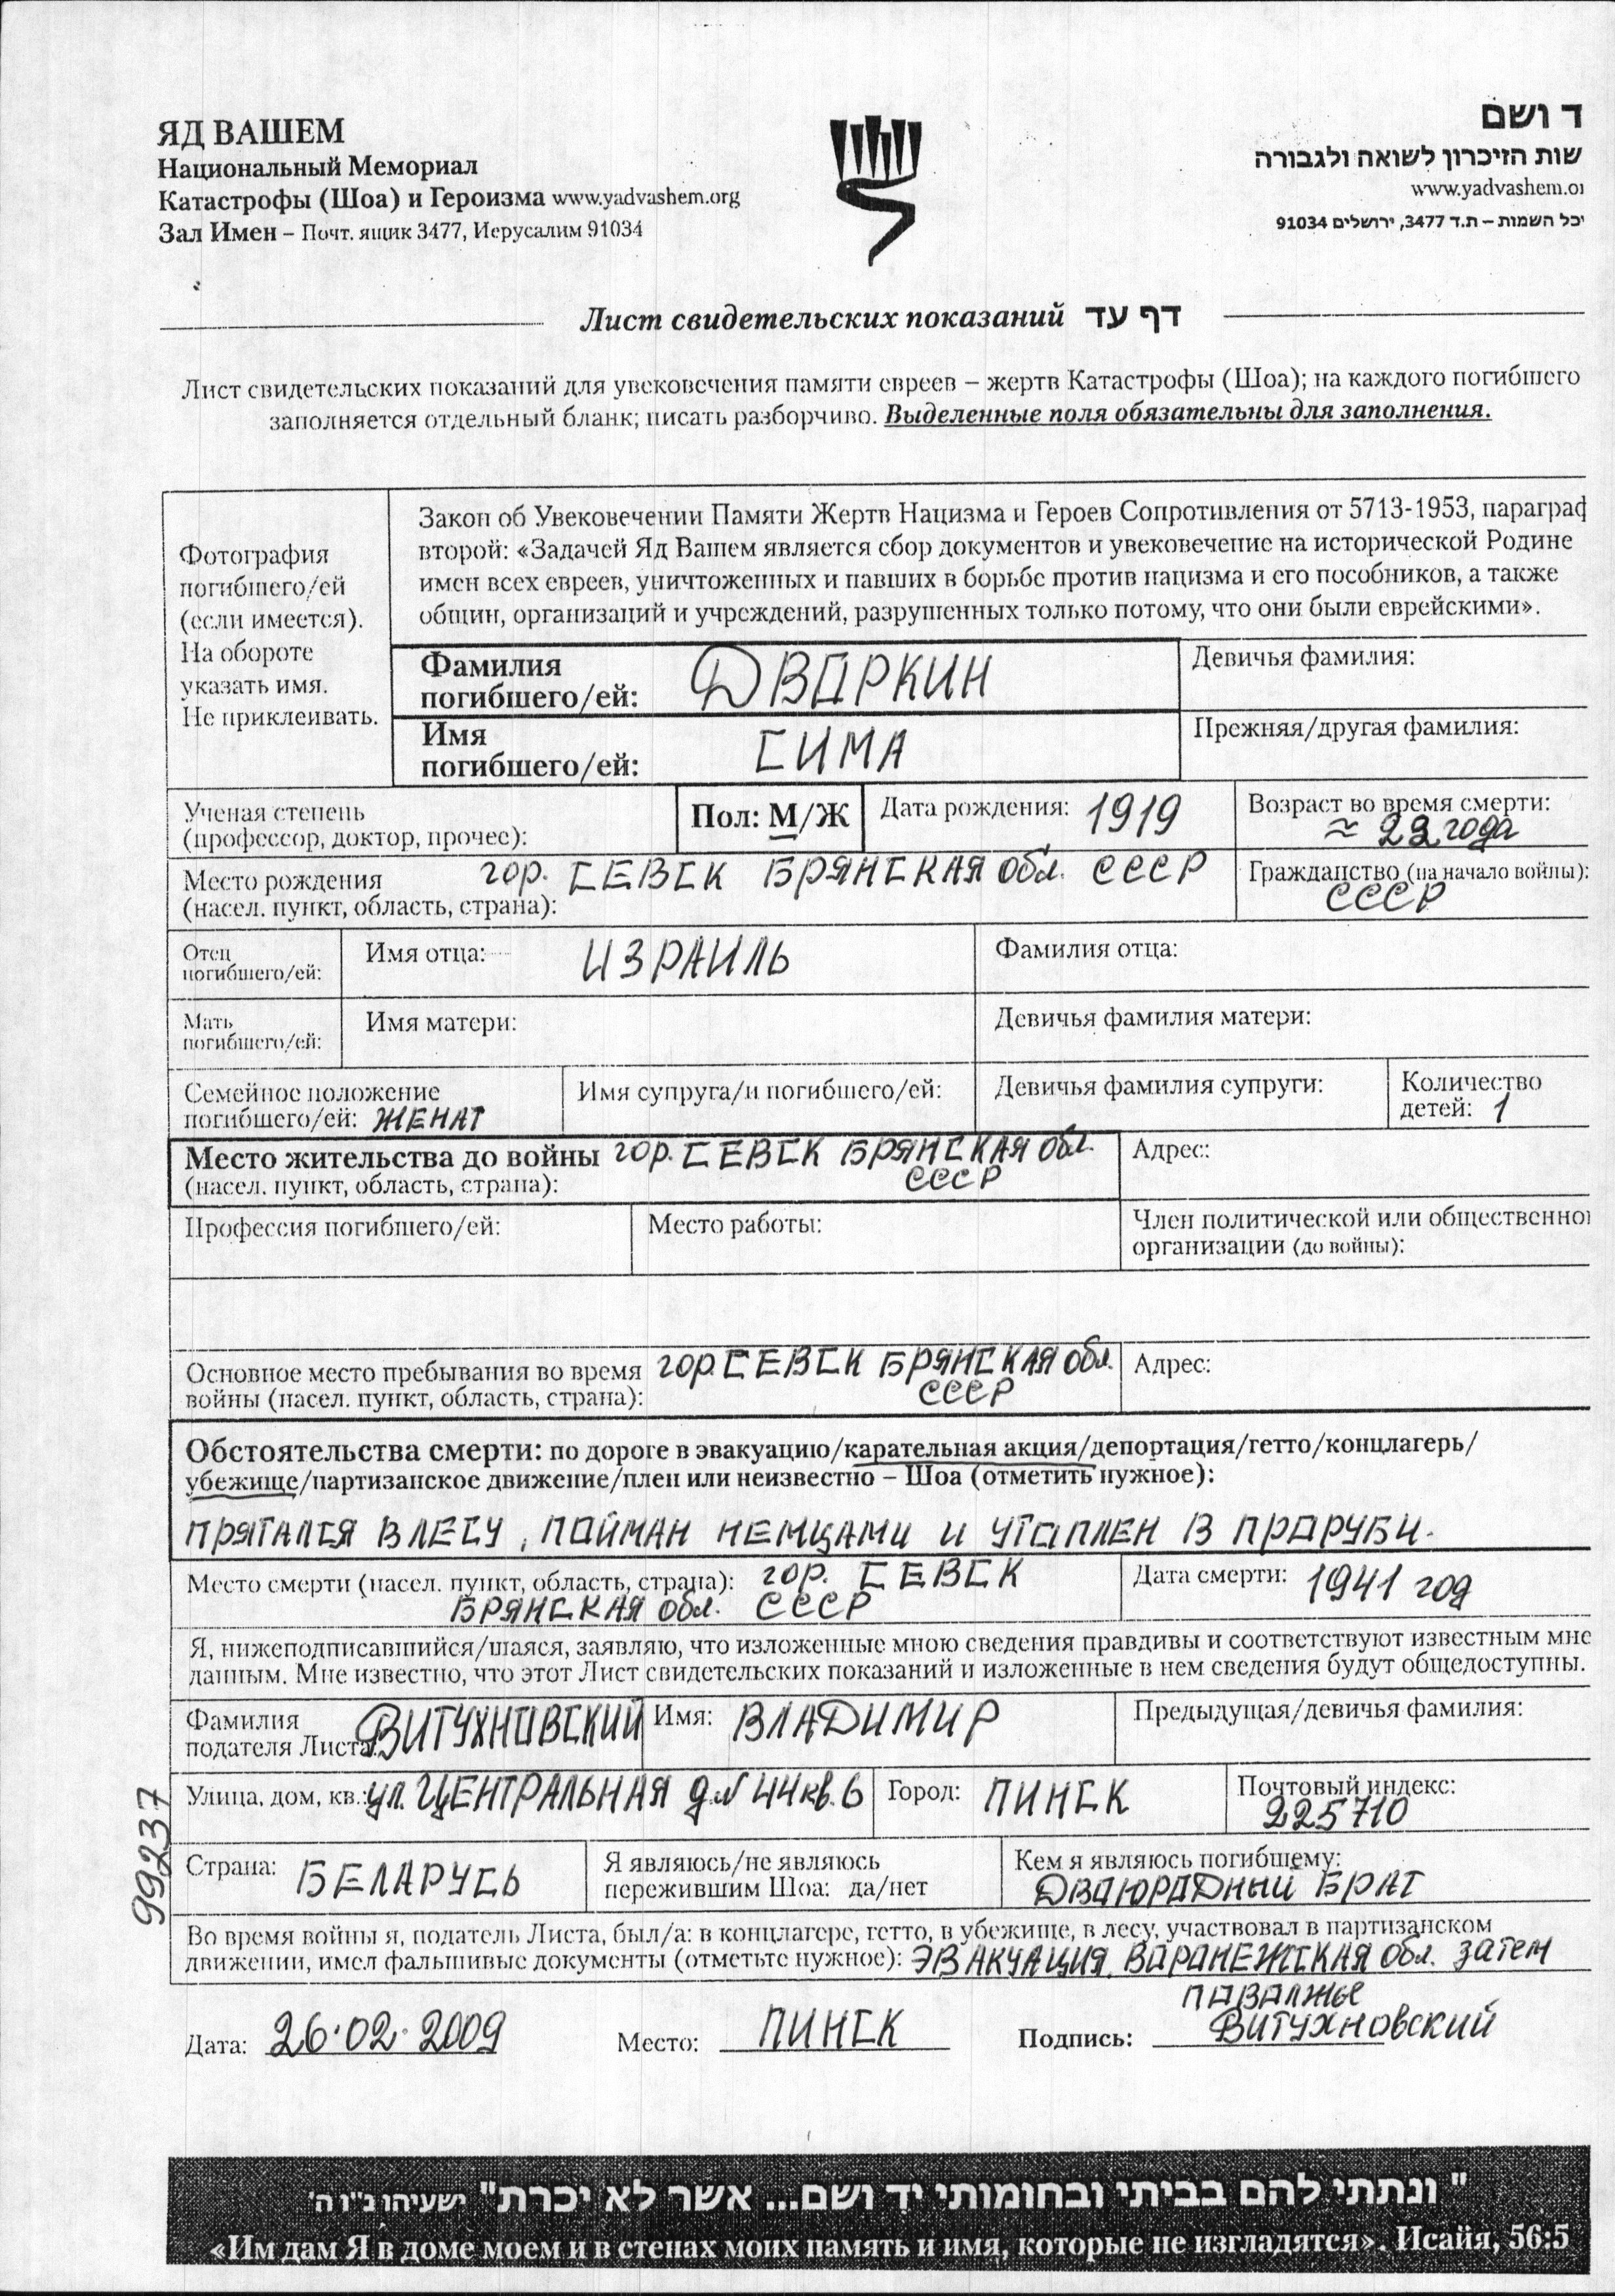 ЯД ВАШЕМ
Национальный Мемориал
Катастрофы (Шоа) и Героизма www.yadvashem.org
Зал Имен – Почт. ящик 3477, Иерусалим 91034
ד ושם
שות הזיכרון לשואה ולגבורה
www.yadvashem.or
יכל השמות – ת.ד 3477, ירושלים 91034
Лист свидетельских показаний דף עד
Лист свидетельских показаний для увековечения памяти евреев – жертв Катастрофы (Шоа); на каждого погибшего
заполняется отдельный бланк; писать разборчиво. Выделенные поля обязательны для заполнения.
Фотография
погибшего/ей
(если имеется).
На обороте
указать имя.
Не приклеивать.
Закон об Увековечении Памяти Жертв Нацизма и Героев Сопротивления от 5713-1953, параграф
второй: «Задачей Яд Вашем является сбор документов и увековечение на исторической Родине
имен всех евреев, уничтоженных и павших в борьбе против нацизма и его пособников, а также
общин, организаций и учреждений, разрушенных только потому, что они были еврейскими».
Фамилия
погибшего/ей: ДВОРКИН
Девичья фамилия:
Имя
погибшего/ей: СИМА
Прежняя/другая фамилия:
Ученая степень
(профессор, доктор, прочее):
Пол: М/Ж
Дата рождения: 1919
Возраст во время смерти:
≈ 22 года
Место рождения гор. СЕВСК БРЯНСКАЯ обл. СССР
(насел. пункт, область, страна):
Гражданство (на начало войны):
СССР
Отец
погибшего/ей:
Имя отца: ИЗРАИЛЬ
Фамилия отца:
Мать
погибшего/ей:
Имя матери:
Девичья фамилия матери:
Семейное положение
погибшего/ей: ЖЕНАТ
Имя супруга/и погибшего/ей:
Девичья фамилия супруги:
Количество
детей: 1
Место жительства до войны гор. СЕВСК БРЯНСКАЯ обл.
(насел. пункт, область, страна): СССР
Адрес:
Профессия погибшего/ей:
Место работы:
Член политической или общественно
организации (до войны):
Основное место пребывания во время гор. СЕВСК БРЯНСКАЯ обл.
войны (насел. пункт, область, страна): СССР
Адрес:
Обстоятельства смерти: по дороге в эвакуацию/карательная акция/депортация/гетто/концлагерь/
убежище/партизанское движение/плен или неизвестно – Шоа (отметить нужное):
ПРЯТАЛСЯ В ЛЕСУ, ПОЙМАН НЕМЦАМИ И УТОПЛЕН В ПРОРУБИ.
Место смерти (насел. пункт, область, страна): гор. СЕВСК
БРЯНСКАЯ обл. СССР
Дата смерти: 1941 год
Я, нижеподписавшийся/шаяся, заявляю, что изложенные мною сведения правдивы и соответствуют известным мне
данным. Мне известно, что этот Лист свидетельских показаний и изложенные в нем сведения будут общедоступны.
Фамилия
подателя Листа: ВИТУХНОВСКИЙ
Имя: ВЛАДИМИР
Предыдущая/девичья фамилия:
Улица, дом, кв.: ул. ЦЕНТРАЛЬНАЯ д.N 44 кв. 6
Город: ПИНСК
Почтовый индекс:
225710
99237
Страна: БЕЛАРУСЬ
Я являюсь/не являюсь
пережившим Шоа: да/нет
Кем я являюсь погибшему:
ДВОЮРОДНЫЙ БРАТ
Во время войны я, податель Листа, был/а: в концлагере, гетто, в убежище, в лесу, участвовал в партизанском
движении, имел фальшивые документы (отметьте нужное): ЭВАКУАЦИЯ, ВОРОНЕЖСКАЯ обл. затем
ПОВОЛЖЬЕ
Дата: 26.02.2009
Место: ПИНСК
Подпись: Витухновский
" ונתתי להם בביתי ובחומותי יד ושם... אשר לא יכרת" ישעיהו נ"ו ה'
«Им дам Я в доме моем и в стенах моих память и имя, которые не изгладятся». Исайя, 56:5